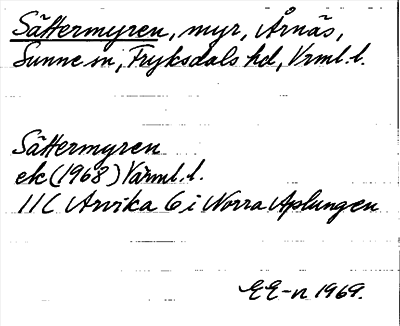 Sättermyren, myr, Årnäs,
Sunne sn, Fryksdals hd, Vrml. l.
Sättermyren
ek (1968) Värml. l.
11C Arvika 6 i Norra Aplungen
EE-n 1969.